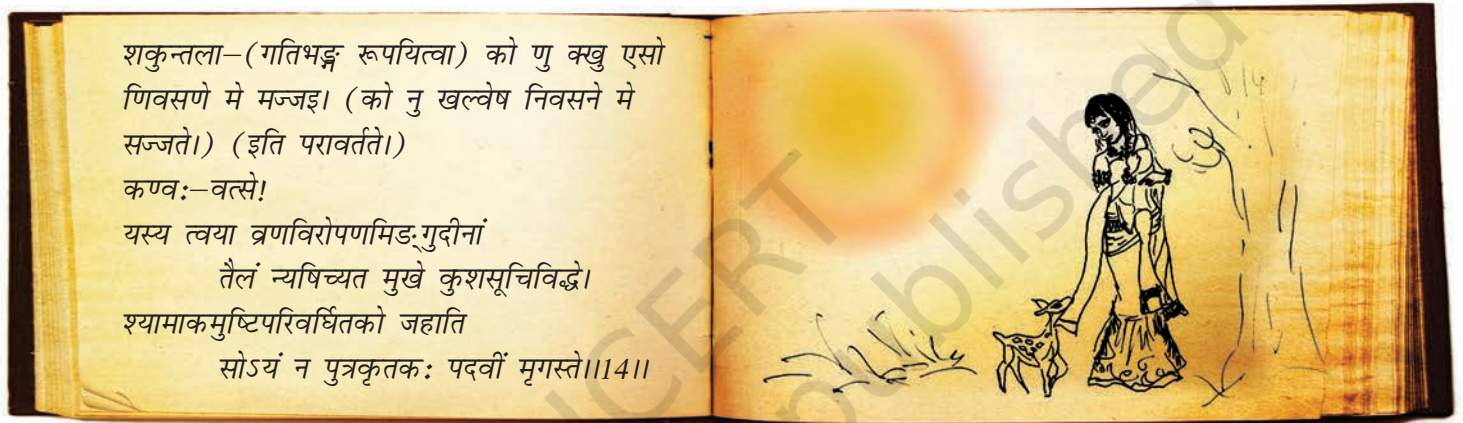 शकुन्तला–(गतिभङ्ग रूपयित्वा) को णु क्खु एसो
णिवसणे मे मज्जइ। (को नु खल्वेष निवसने मे
सज्जते।) (इति परावर्तते।)
कण्वः–वत्से!
यस्य त्वया व्रणविरोपणमिङ्गुदीनां
तैलं न्यषिच्यत मुखे कुशसूचिविद्धे।
श्यामाकमुष्टिपरिवर्धितको जहाति
सोऽयं न पुत्रकृतकः पदवीं मृगस्ते।।14।।